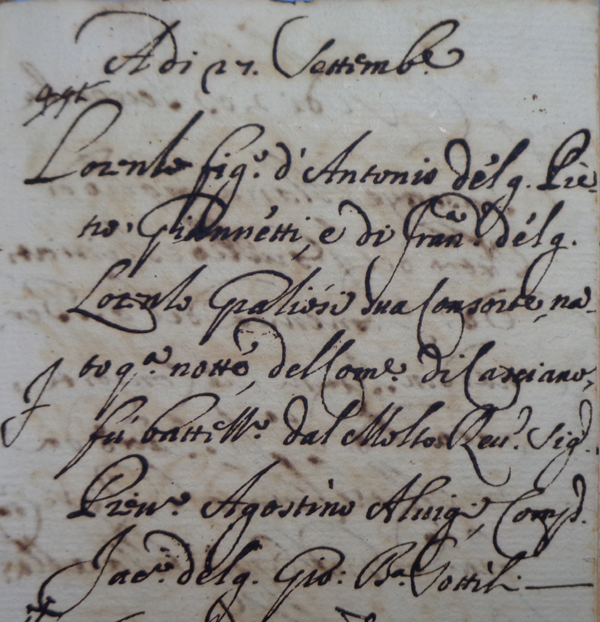 Adi 27. Settembe.
Lorenzo fig.º d'Antonio délq. Pie-
tro Giannétti, e di Fran.ca délq.
Lorenzo Paliési sua Consorte, na-
to q.a notté, del Com.e di Casciano,
fù battezz.º dal Molto Reu.º Sig.r
Pieu.º Agostino Aluigi, Comp.e
Jac.º délq. Gio: B.a Sottili